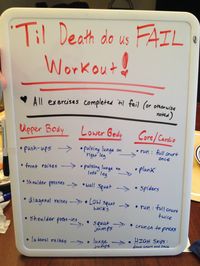 'Til Death do us FAIL
Workout!
♥ All exercises completed 'til fail (or otherwise noted)
Upper Body Lower Body Core/Cardio
• push-ups → • pulsing lunge on right leg → • run: full court once
• front raises → • pulsing lunge on left leg → • plank
• shoulder presses → • wall squat → • spiders
• diagonal raises → • LOW squat walks → • run: full court twice
• shoulder push-ups → • squat jumps → • crunch to press
• lateral raises → • lunge jumps → • HIGH skips